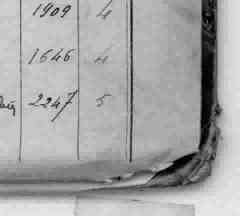 1909 4
1646 4
2247 5